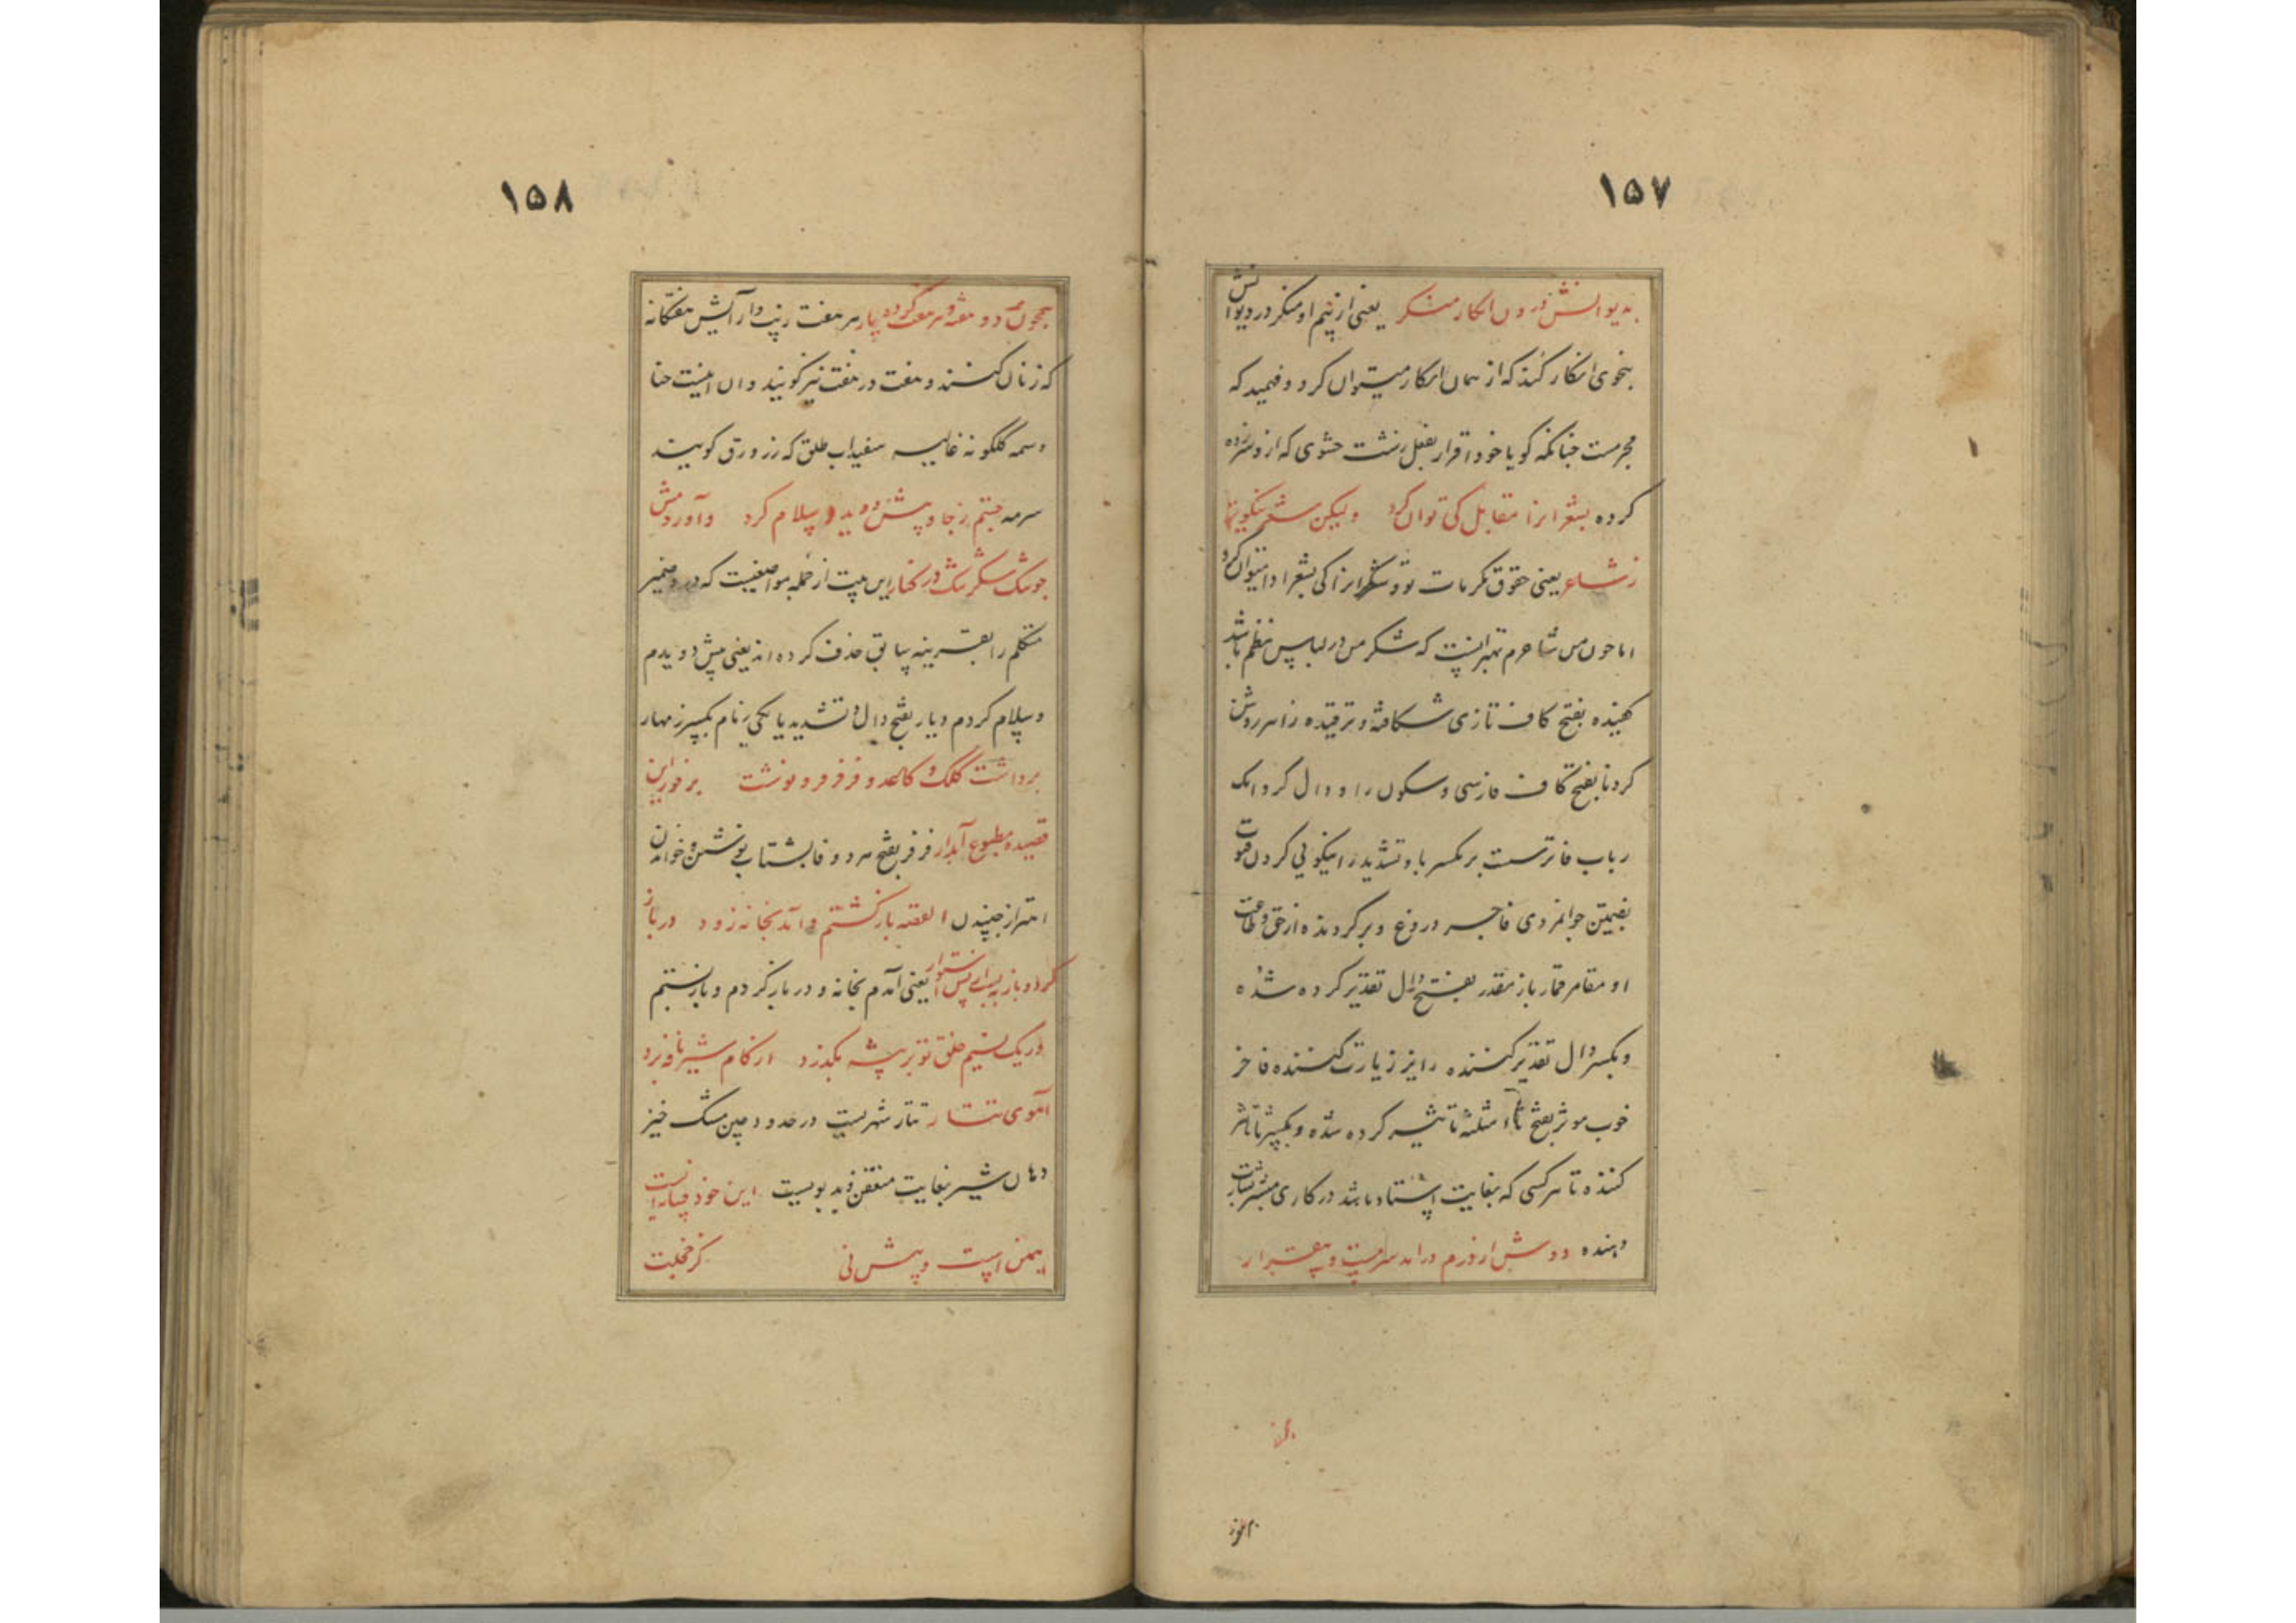 ۱۵۷
بدیوانش درون انکار منکر یعنی از بیم او منکر در دیوانش
بنحوی انکار کند که از همان انکار میتوان کرد و فهمید که
مجرمست چنانکه گویا خود اقرار بفعل زشت خودی که ازو سر زده
کرده بشعر اینرا مقابل کی توان کرد ولیکن شعر نیکوتر
ز شاعر یعنی حقوق مکرمات تو و شکر اینرا کی بشعر ادا میتوان کرد
اما چون من شاعرم بهتر اینست که شکر من در لباس نظم باشد
کفیده بفتح کاف تازی شکافته و ترقیده زاسر روشن
کردنا بفتح کاف فارسی و سکون را و دال گردانک
رباب فاترست بر بکسر با و تشدید را نیکویی کردن فتوت
بضمتین جوانمردی فاجر دروغ و برگردنده از حق و طاعت
او مقامر قمار باز مقدر بفتح دال تقدیر کرده شده
و بکسر دال تقدیر کننده زایر زیارت کننده فاخر
خوب موثر بفتح ثاء مثلثه تاثیر کرده شده و بکسر ثا تاثر
کننده تا هر کسی که بغایت استاد باشد در کاری مبشر بشارت
دهنده دوش از درم درآمد سرمست و بیقرار
۱۵۸
همچون مه دو هفته و هر هفت کرده یار هر هفت زینت و آرایش هفتگانه
که زنان کنند و هفت در هفت نیز گویند و آن اینست حنا
وسمه گلگونه غالیه سفیداب طلق که زرورق گویند
سرمه جستم ز جا و پیش دویدم و سلام کرد وآوردمش
چو تنگ شکر تنگ در کنار این بیت از جمله مواضعیست که درو ضمیر
متکلم را بقرینه سابق حذف کرده اند یعنی پیش دویدم
و سلام کردم و یار بفتح دال و تشدید یا یکی نام بکسر ز مهار
برداشت کلک و کاغد و فرفر فرو نوشت بر فور این
قصیده مطبوع آبدار فرفر بفتح هر دو فا بشتاب نوشتن و خواندن
اهتزاز جنبیدن القصه بازگشتم و آمد بخانه زود در باز
کرد و باز ببست از پس استوار یعنی آمدم بخانه و در باز کردم و باز بستم
ور یک نسیم خلق تو بر بیشه بگذرد از کام شیر نافه برد
آهوی تتار تتار شهریست در حدود چین مشک خیز
دهان شیر بغایت متعفن و بد بویست این خود چنانست
گر خجلت